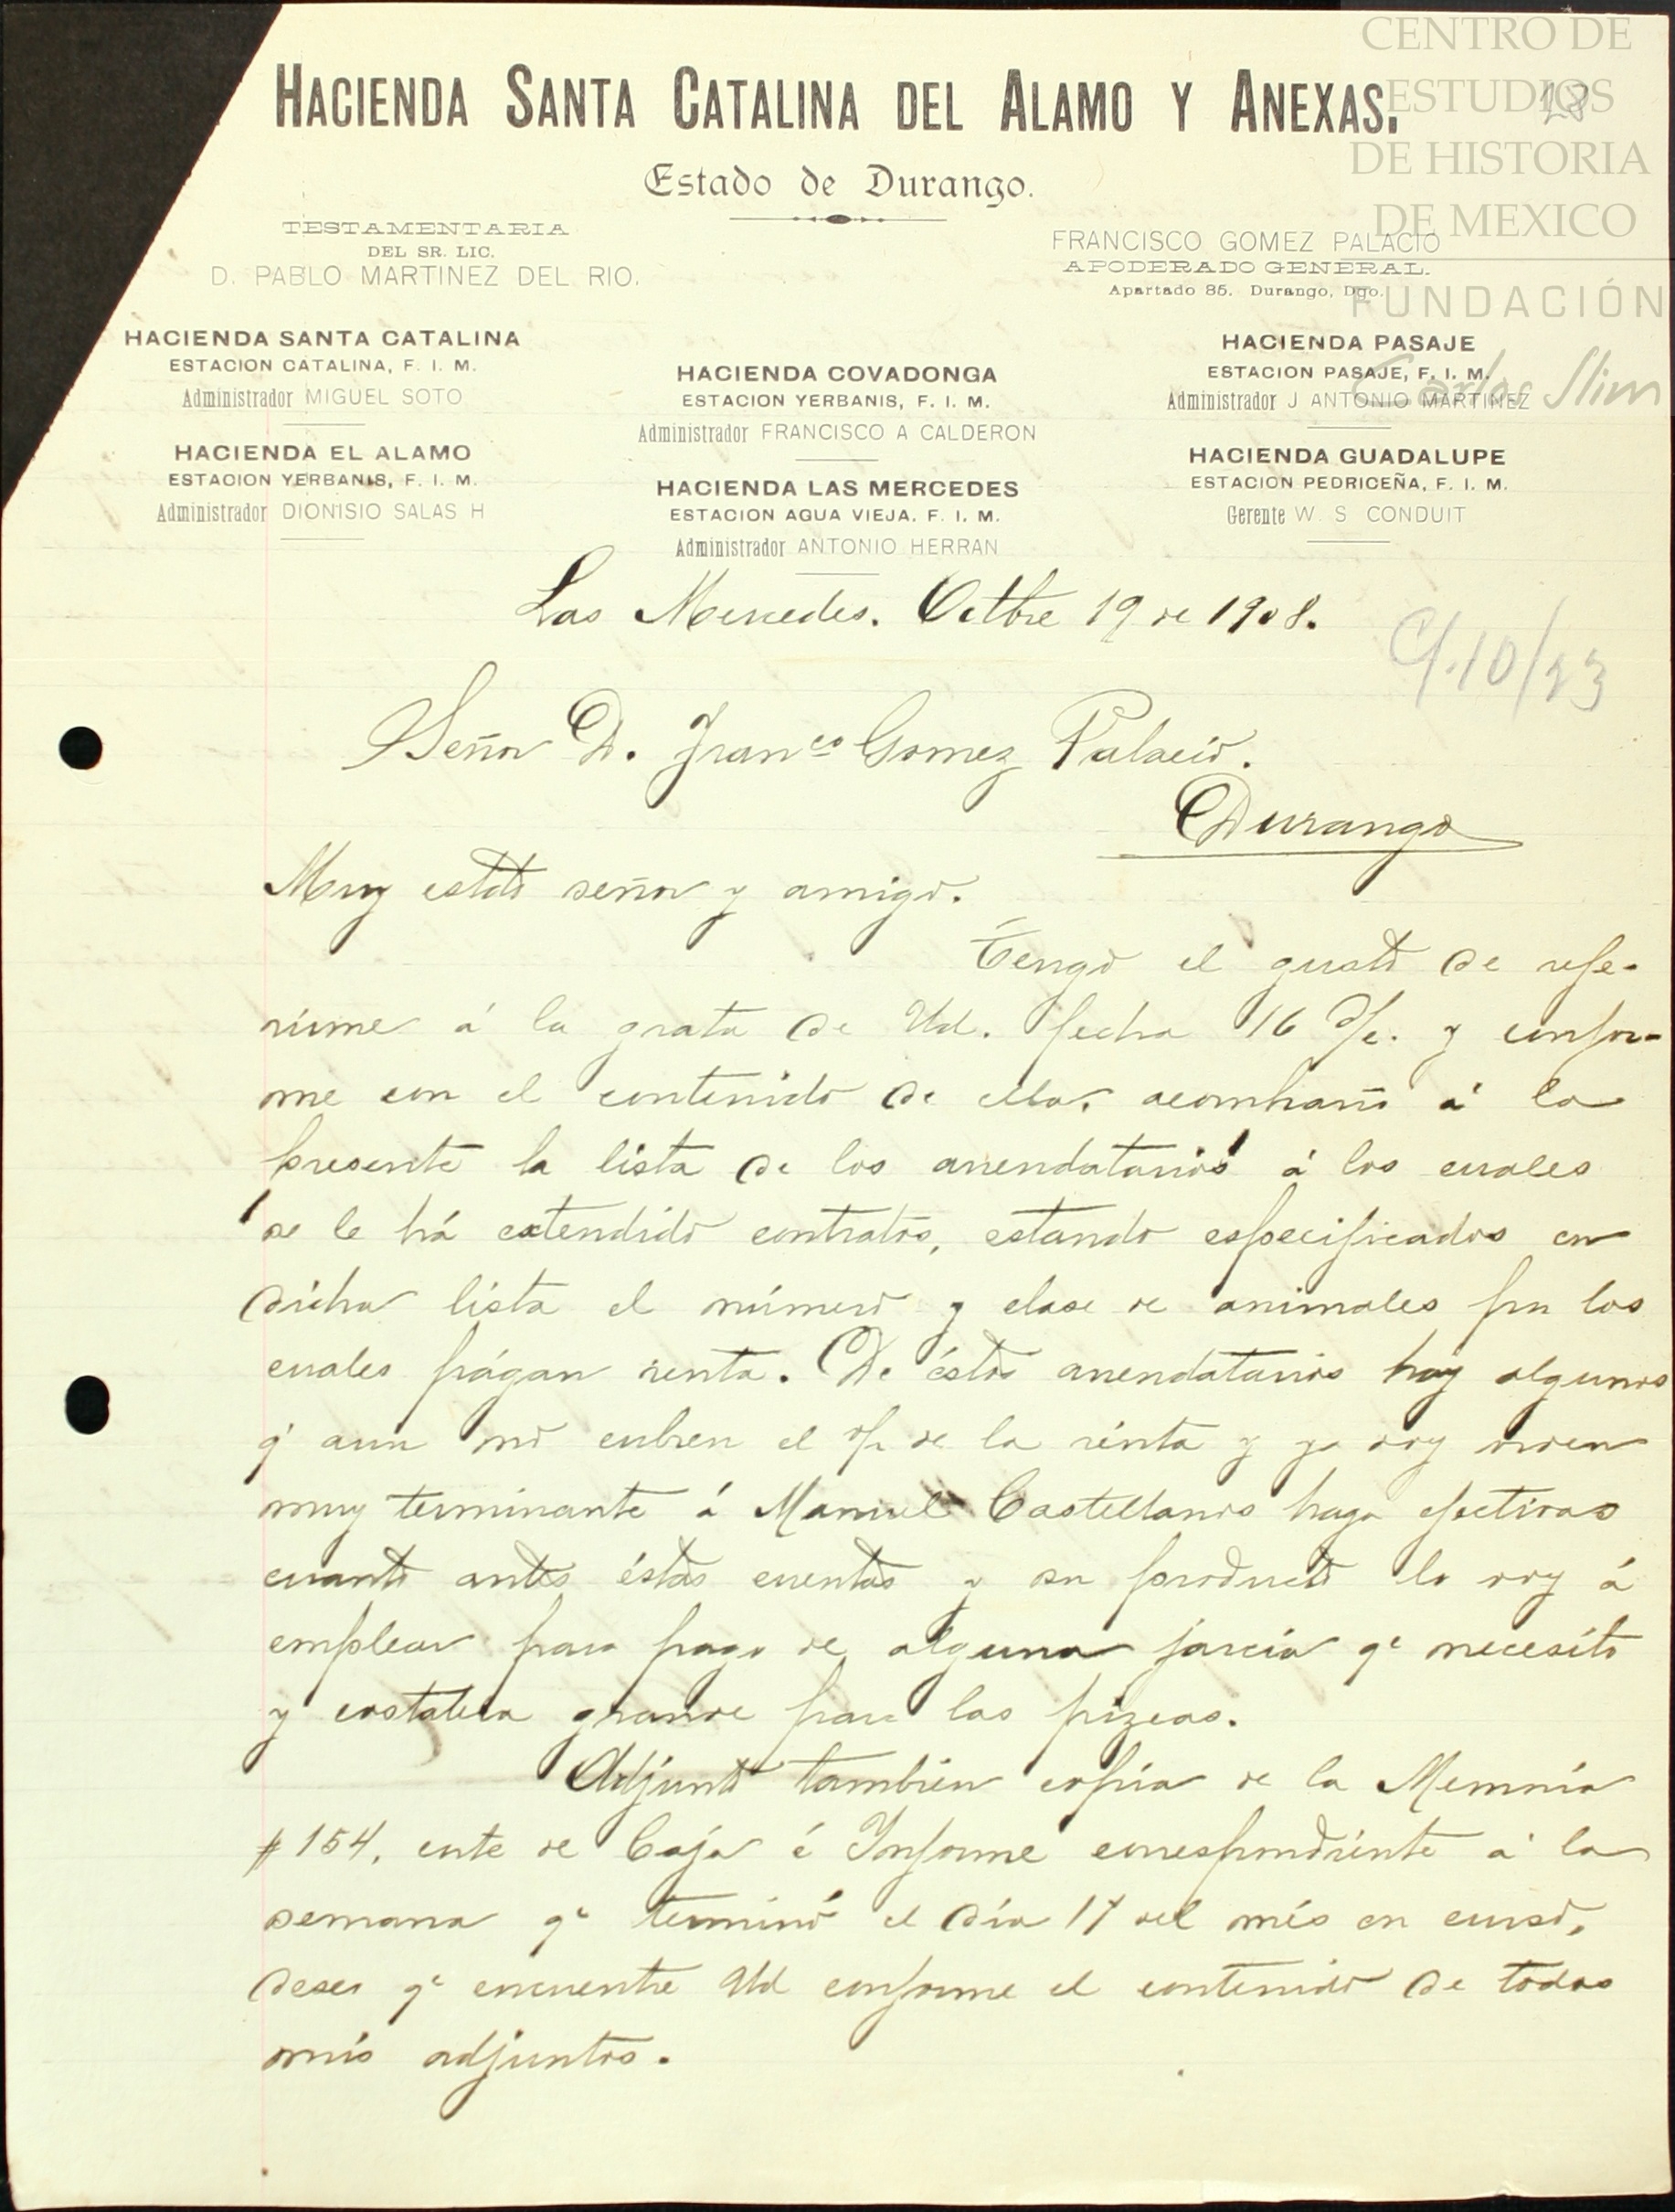 HACIENDA SANTA CATALINA DEL ALAMO Y ANEXAS.
Estado de Durango.
TESTAMENTARIA
DEL SR. LIC.
D. PABLO MARTINEZ DEL RIO.
FRANCISCO GOMEZ PALACIO
APODERADO GENERAL.
Apartado 85. Durango, Dgo.
HACIENDA SANTA CATALINA
ESTACION CATALINA, F. I. M.
Administrador MIGUEL SOTO
HACIENDA EL ALAMO
ESTACION YERBANIS, F. I. M.
Administrador DIONISIO SALAS H
HACIENDA COVADONGA
ESTACION YERBANIS, F. I. M.
Administrador FRANCISCO A CALDERON
HACIENDA LAS MERCEDES
ESTACION AGUA VIEJA. F. I. M.
Administrador ANTONIO HERRAN
HACIENDA PASAJE
ESTACION PASAJE, F. I. M.
Administrador J ANTONIO MARTINEZ
HACIENDA GUADALUPE
ESTACION PEDRICEÑA, F. I. M.
Gerente W. S CONDUIT
CENTRO DE
ESTUDIOS
DE HISTORIA
DE MEXICO
FUNDACIÓN
Carlos Slim
28
Las Mercedes. Octbre 19 de 1908.
C/.10/23
Señor D. Franco Gomez Palacio.
Durango
Muy estdo señor y amigo.
Tengo el gusto de refe-
rirme á la grata de Ud. fecha 16 d/c. y confor-
me con el contenido de ella, acompaño á la
presente la lista de los arrendatarios á los cuales
se le há extendido contratos, estando especificados en
dicha lista el número y clase de animales por los
cuales págan renta. De éstos arrendatarios hay algunos
q' aun no cubren el de la rénta y ya doy orden
muy terminante á Manuel Castellanos haga efectivas
cuanto antes éstas cuentas y su producto lo voy á
emplear para pago de alguna jarcia qe necesito
y costalera grande para las pizcas.
Adjunto tambien copia de la Memoria
# 154, cute de Caja é Informe correspondiénte á la
semana qe terminó el día 17 del més en curso,
deseo qe encuentre Ud conforme el contenido de todos
mis adjuntos.